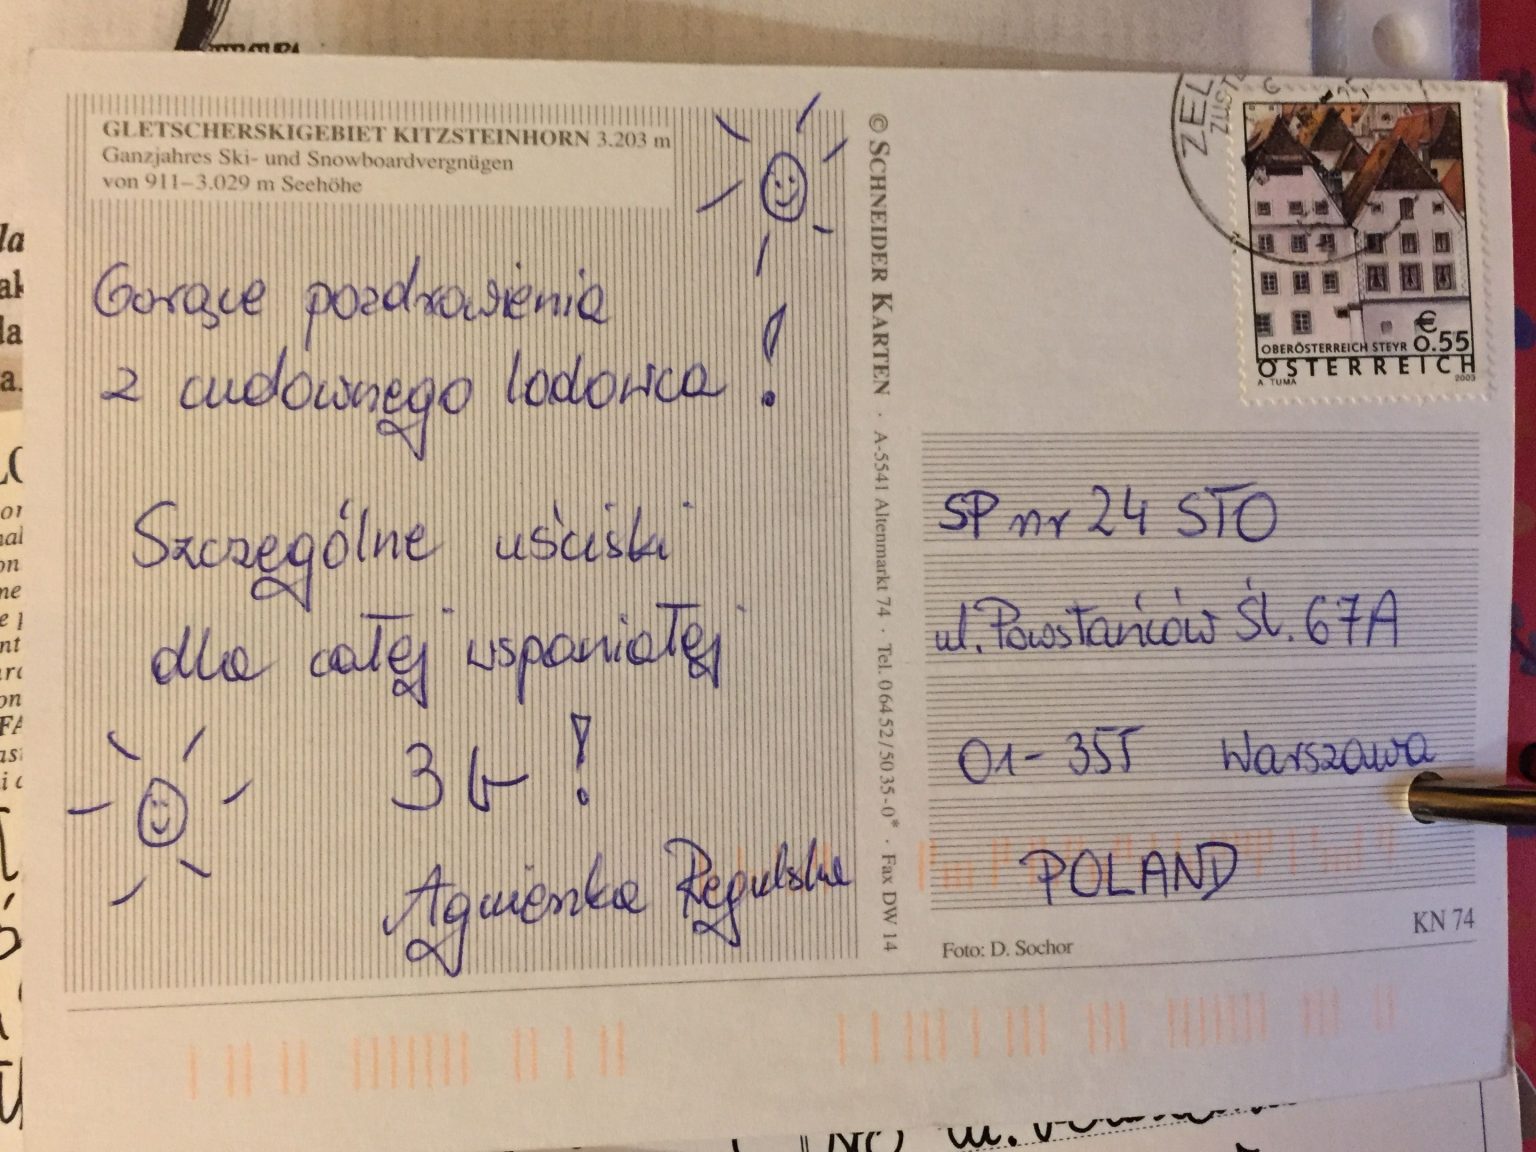 GLETSCHERSKIGEBIET KITZSTEINHORN 3.203 m
Ganzjahres Ski- und Snowboardvergnügen
von 911–3.029 m Seehöhe
Gorące pozdrowienia
z cudownego lodowca!
Szczególne uściski
dla całej wspaniałej
3 b!
Agnieszka Regulska
© SCHNEIDER KARTEN · A-5541 Altenmarkt 74 · Tel. 0 64 52 / 50 35-0* · Fax DW 14
ZEL
ZUSTE
€
0.55
OBERÖSTERREICH STEYR
ÖSTERREICH
A. TUMA 2003
SP nr 24 STO
ul. Powstańców Śl. 67A
01-355 Warszawa
POLAND
Foto: D. Sochor
KN 74